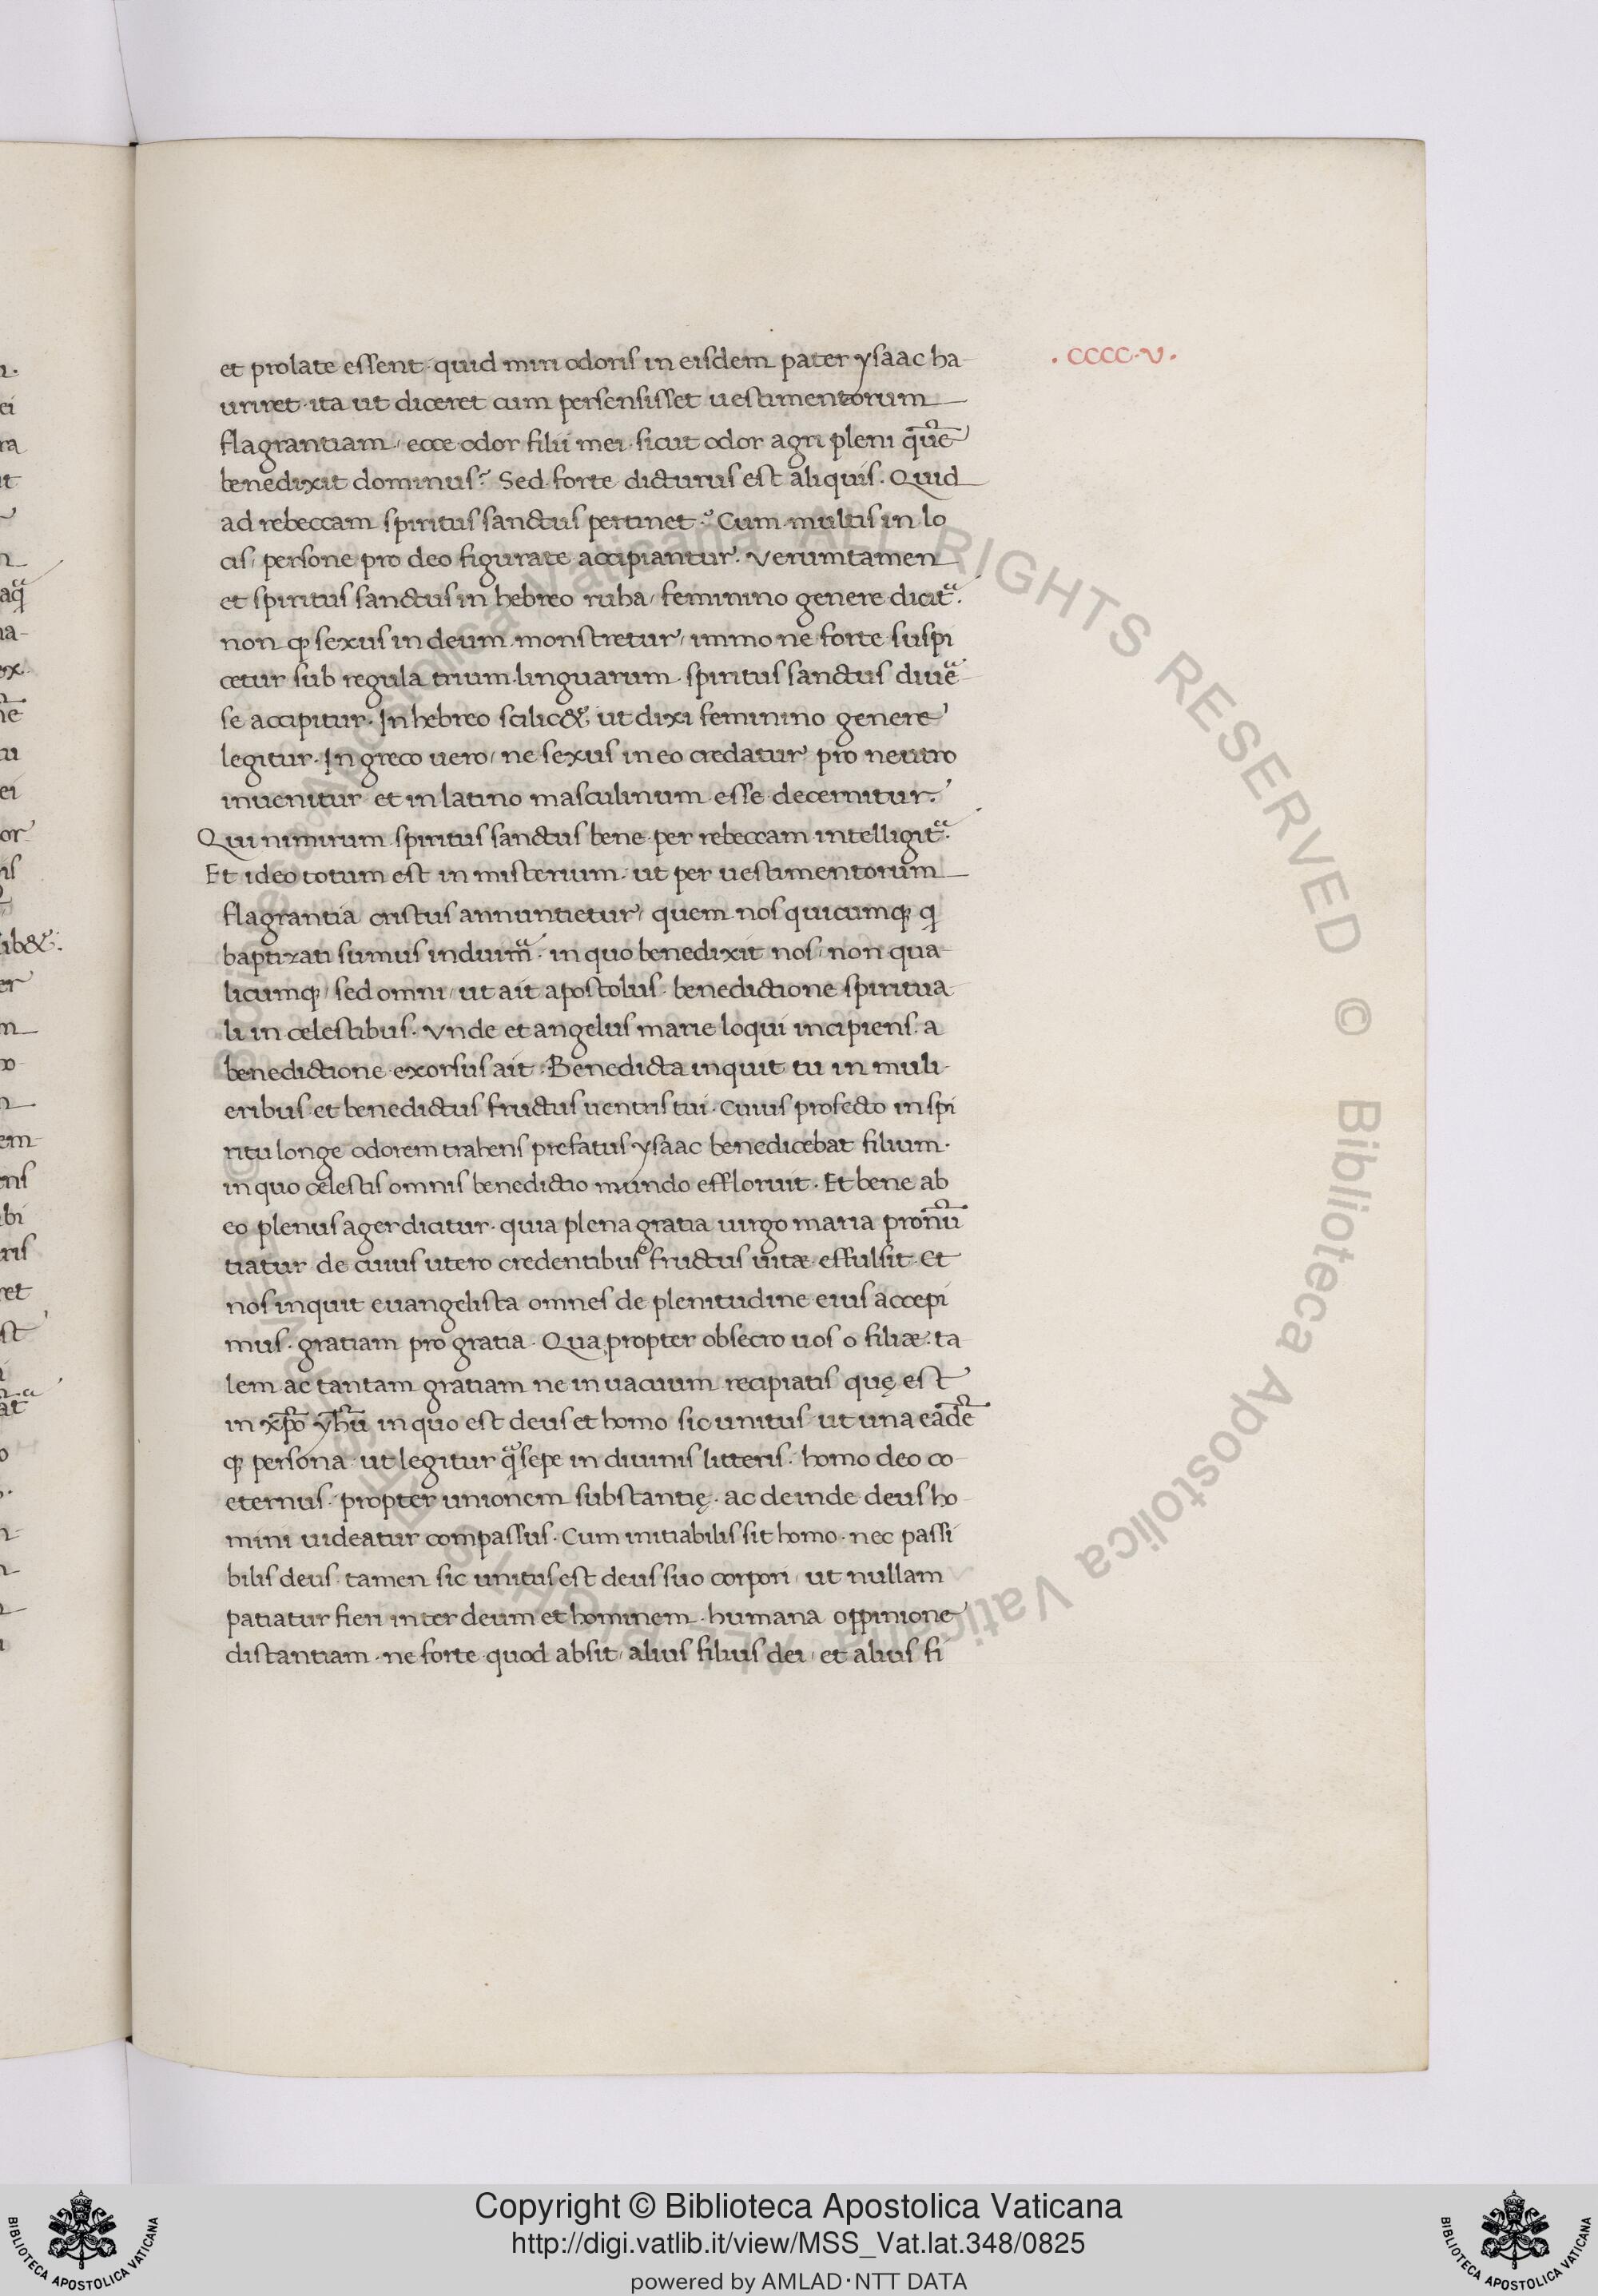 et prolate essent · quid miri odoris in eisdem pater ysaac ha-
uriret · ita ut diceret cum persensisset uestimentorum
flagrantiam / ecce odor filii mei · sicut odor agri pleni quē
benedixit dominus? Sed forte dicturus est aliquis. Quid
ad rebeccam spiritus sanctus pertinet? Cum multis in lo
cis / persone pro deo figurate accipiantur. Verumtamen
et spiritus sanctus in hebreo ruha / feminino genere dicit᷒.
non ꝙ sexus in deum monstretur / immo ne forte suspi
cetur sub regula trium linguarum · spiritus sanctus diue-
se accipitur. In hebreo scilic& / ut dixi feminino genere
legitur. In greco uero / ne sexus in eo credatur pro neutro
inuenitur et in latino masculinum esse decernitur.
Qui nimirum spiritus sanctus bene per rebeccam intelligit᷒.
Et ideo totum est in misterium · ut per uestimentorum
flagrantia cristus annuntietur / quem nos quicumqꝫ q
baptizati sumus induim᷒ · in quo benedixit nos / non qua-
licumqꝫ / sed omni / ut ait apostolus · benedictione spiritua-
li in celestibus. Vnde et angelus marie loqui incipiens · a
benedictione exorsus ait · Benedicta inquit tu in muli-
eribus et benedictus fructus uentris tui. Cuius profecto in spi
ritu longe odorem trahens prefatus ysaac benedicebat filium ·
in quo celestis omnis benedictio mundo effloruit. Et bene ab
eo plenus ager dicitur · quia plena gratia uirgo maria pronū
tiatur de cuius utero credentibus fructus uitæ effulsit. Et
nos inquit euangelista omnes de plenitudine eius accepi
mus · gratiam pro gratia. Qua propter obsecro uos o filiæ · ta
lem ac tantam gratiam ne in uacuum recipiatis quę est
in xp̄o yh̄u in quo est deus et homo sic unitus ut una eadē
qꝫ persona · ut legitur qͣ sepe in diuinis litteris · homo deo co-
eternus · propter unionem substantię · ac deinde deus ho-
mini uideatur compassus. Cum initiabilis sit homo · nec passi
bilis deus · tamen sic unitus est deus suo corpori / ut nullam
patiatur fieri inter deum et hominem · humana oppinione
distantiam · ne forte quod absit / alius filius dei / et alius fi
· CCCC · V ·
Copyright © Biblioteca Apostolica Vaticana
http://digi.vatlib.it/view/MSS_Vat.lat.348/0825
powered by AMLAD·NTT DATA